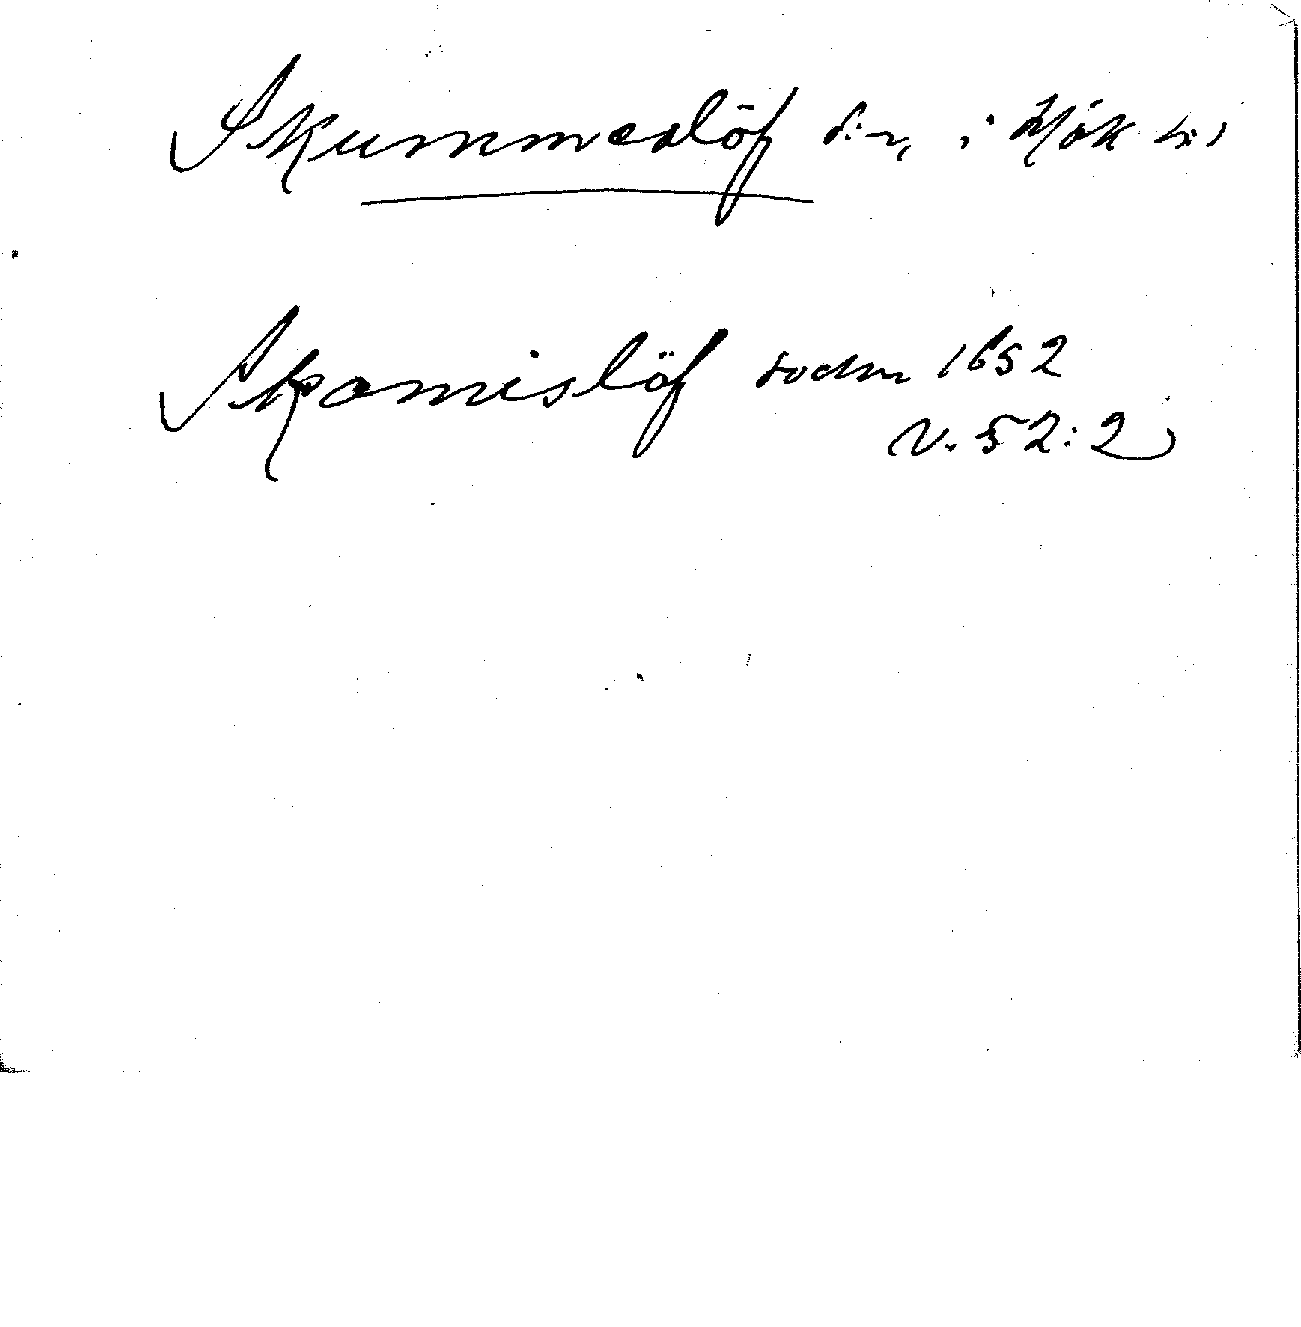 Skummeslöf s:n, i Hök h:d
Skomislöf sochn 1652
V. 52:2